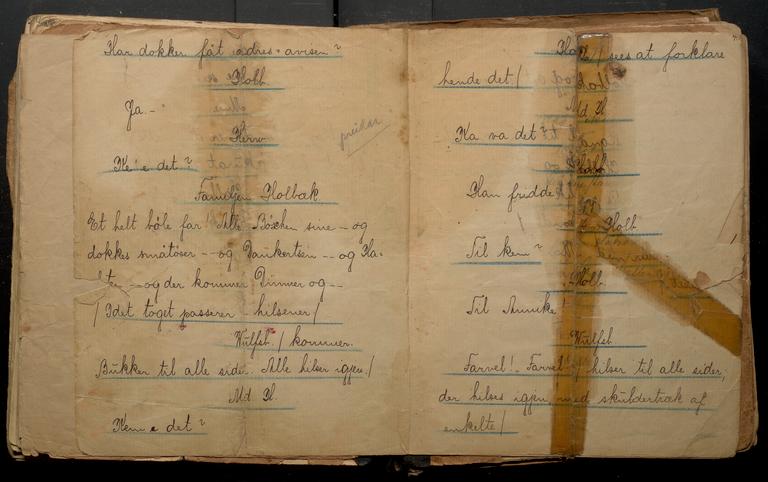 Har dokker fåt adres-avisen?
Holb.
Ja -
Herw
Ke' e det?
Familjen Holbæk
Et helt bøle far! Alle Böschen sine - og
dokkes småtøser -- og Dankertsen -- og Ha-
- og der kommer Dimmer og --
/ Idet toget passerer - hilsener /
Wulfst. / kommer.
Bukker til alle sider. Alle hilser igjen. /
Md H
Kem e det?
preikar
sees at forklare
hende det. /
Md H
Ka va det?
Holb
Han fridde
Holb
Til kem?
Holb.
Til Annike!
Wulfst
Farvel! - Farvel! / hilser til alle sider,
der hilses igjen, med skuldertræk af
enkelte /